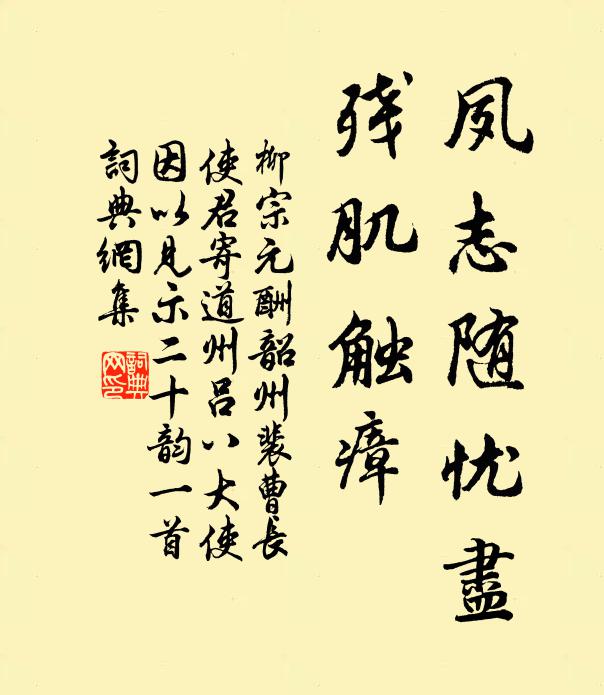 夙志随忧盡
残肌触瘴
柳宗元酬韶州裴曹長
使君寄道州吕八大使
因以见示二十韵一首
詞典網集
詞典网印